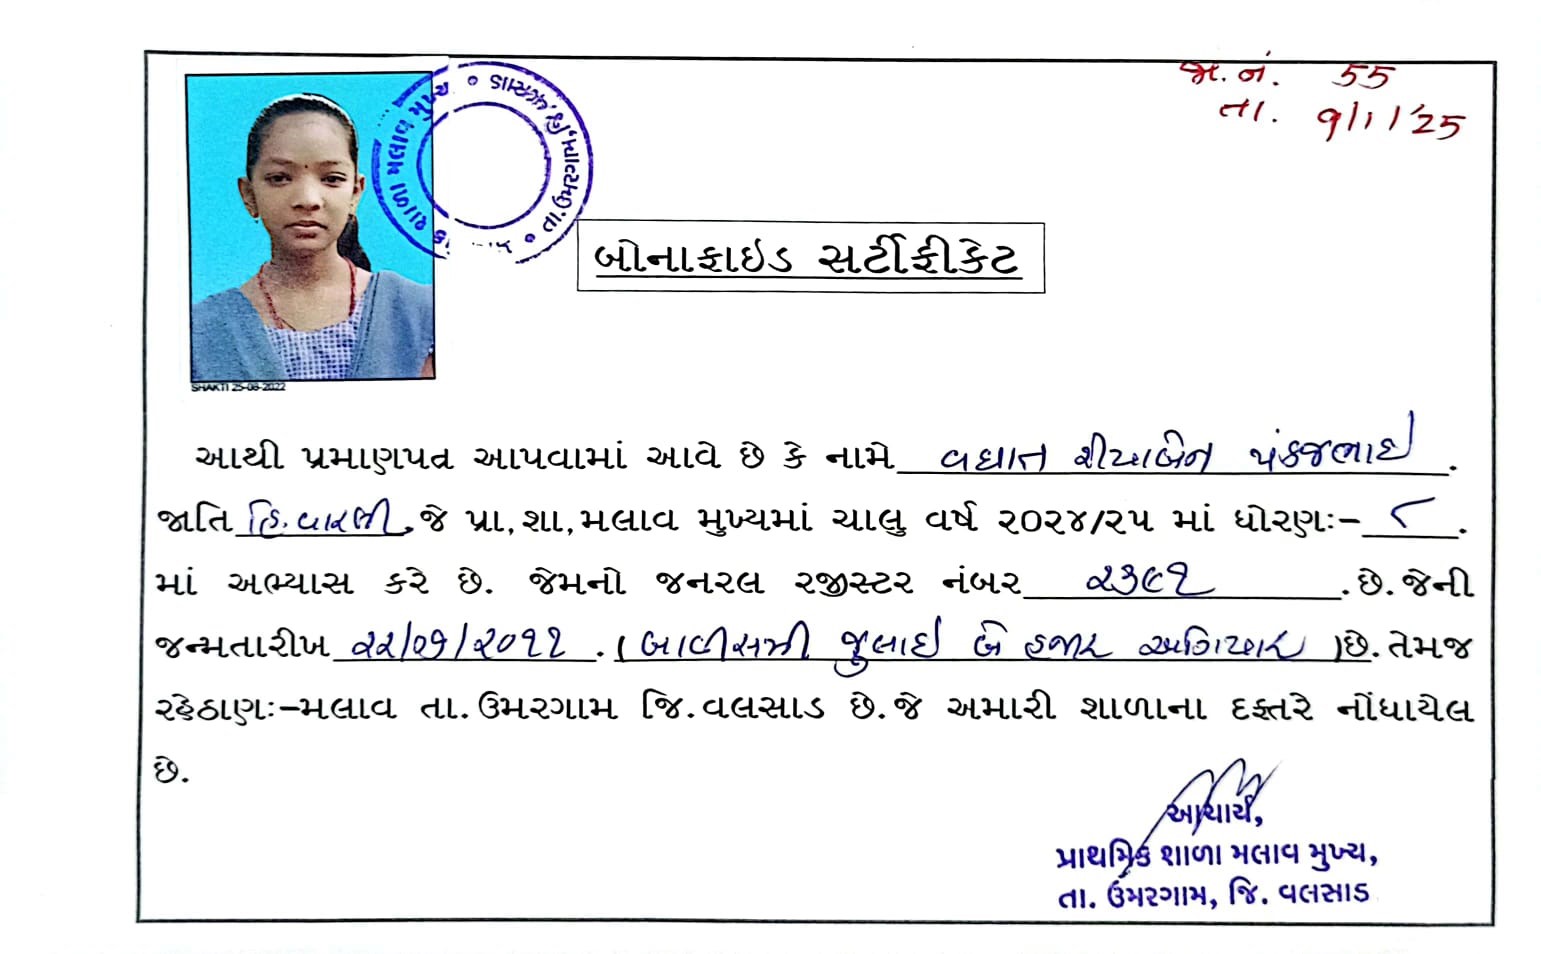 જા.નં. 55
તા. ૧/1/'25
પ્રાથમિક શાળા મલાવ મુખ્ય • તા.ઉમરગામ,જી.વલસાડ •
SHAKTI 25-08-2022
બોનાફાઇડ સર્ટીફીકેટ
આથી પ્રમાણપત્ર આપવામાં આવે છે કે નામે વઘાત રીયાબેન પંકજભાઈ .
જાતિ હિ.વારલી. જે પ્રા,શા,મલાવ મુખ્યમાં ચાલુ વર્ષ ૨૦૨૪/૨૫ માં ધોરણઃ- ૮ .
માં અભ્યાસ કરે છે. જેમનો જનરલ રજીસ્ટર નંબર ૨૩૯૧ .છે.જેની
જન્મતારીખ ૨૨/૦૭/૨૦૧૧ .(બાવીસમી જુલાઈ બે હજાર અગિયાર )છે.તેમજ
રહેઠાણઃ-મલાવ તા.ઉમરગામ જિ.વલસાડ છે.જે અમારી શાળાના દફ્તરે નોંધાયેલ
છે.
આચાર્ય,
પ્રાથમિક શાળા મલાવ મુખ્ય,
તા. ઉંમરગામ, જિ. વલસાડ